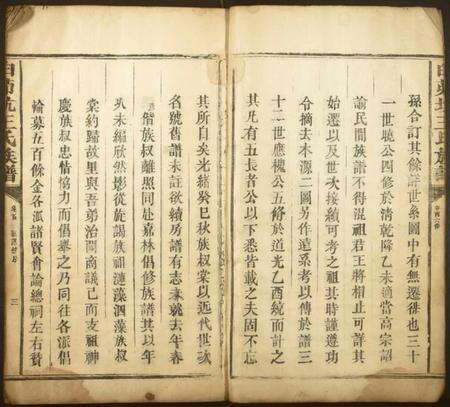 孫合訂其餘詳世系圖中有無遷徙也三十
一世曉公四修於清乾隆乙未適當高宗詔
諭民間族譜不得混祖君王將相止可詳其
始遷以及世次接續可考之祖其時謹遵功
令摘去本源二圖另作遠系考以傳於譜三
十二世應槐公五脩於道光乙酉統而計之
其凡有五長者公以下悉皆載之夫固不忘
其所自矣光緒癸巳秋族叔棠以近代世次
名號舊譜未註欲續房譜有志未就去年春
偕族叔離照同赴嘉林倡修族譜其以年
欣然影從旋錫族祖漣藻泗藻族叔
棠約歸故里與吾弟治同商議已而支祖神
慶族叔忠惜協力而倡舉之乃同往各派倡
輪募五百餘金各派諸賢會論總祠左右贊
王氏族譜
三